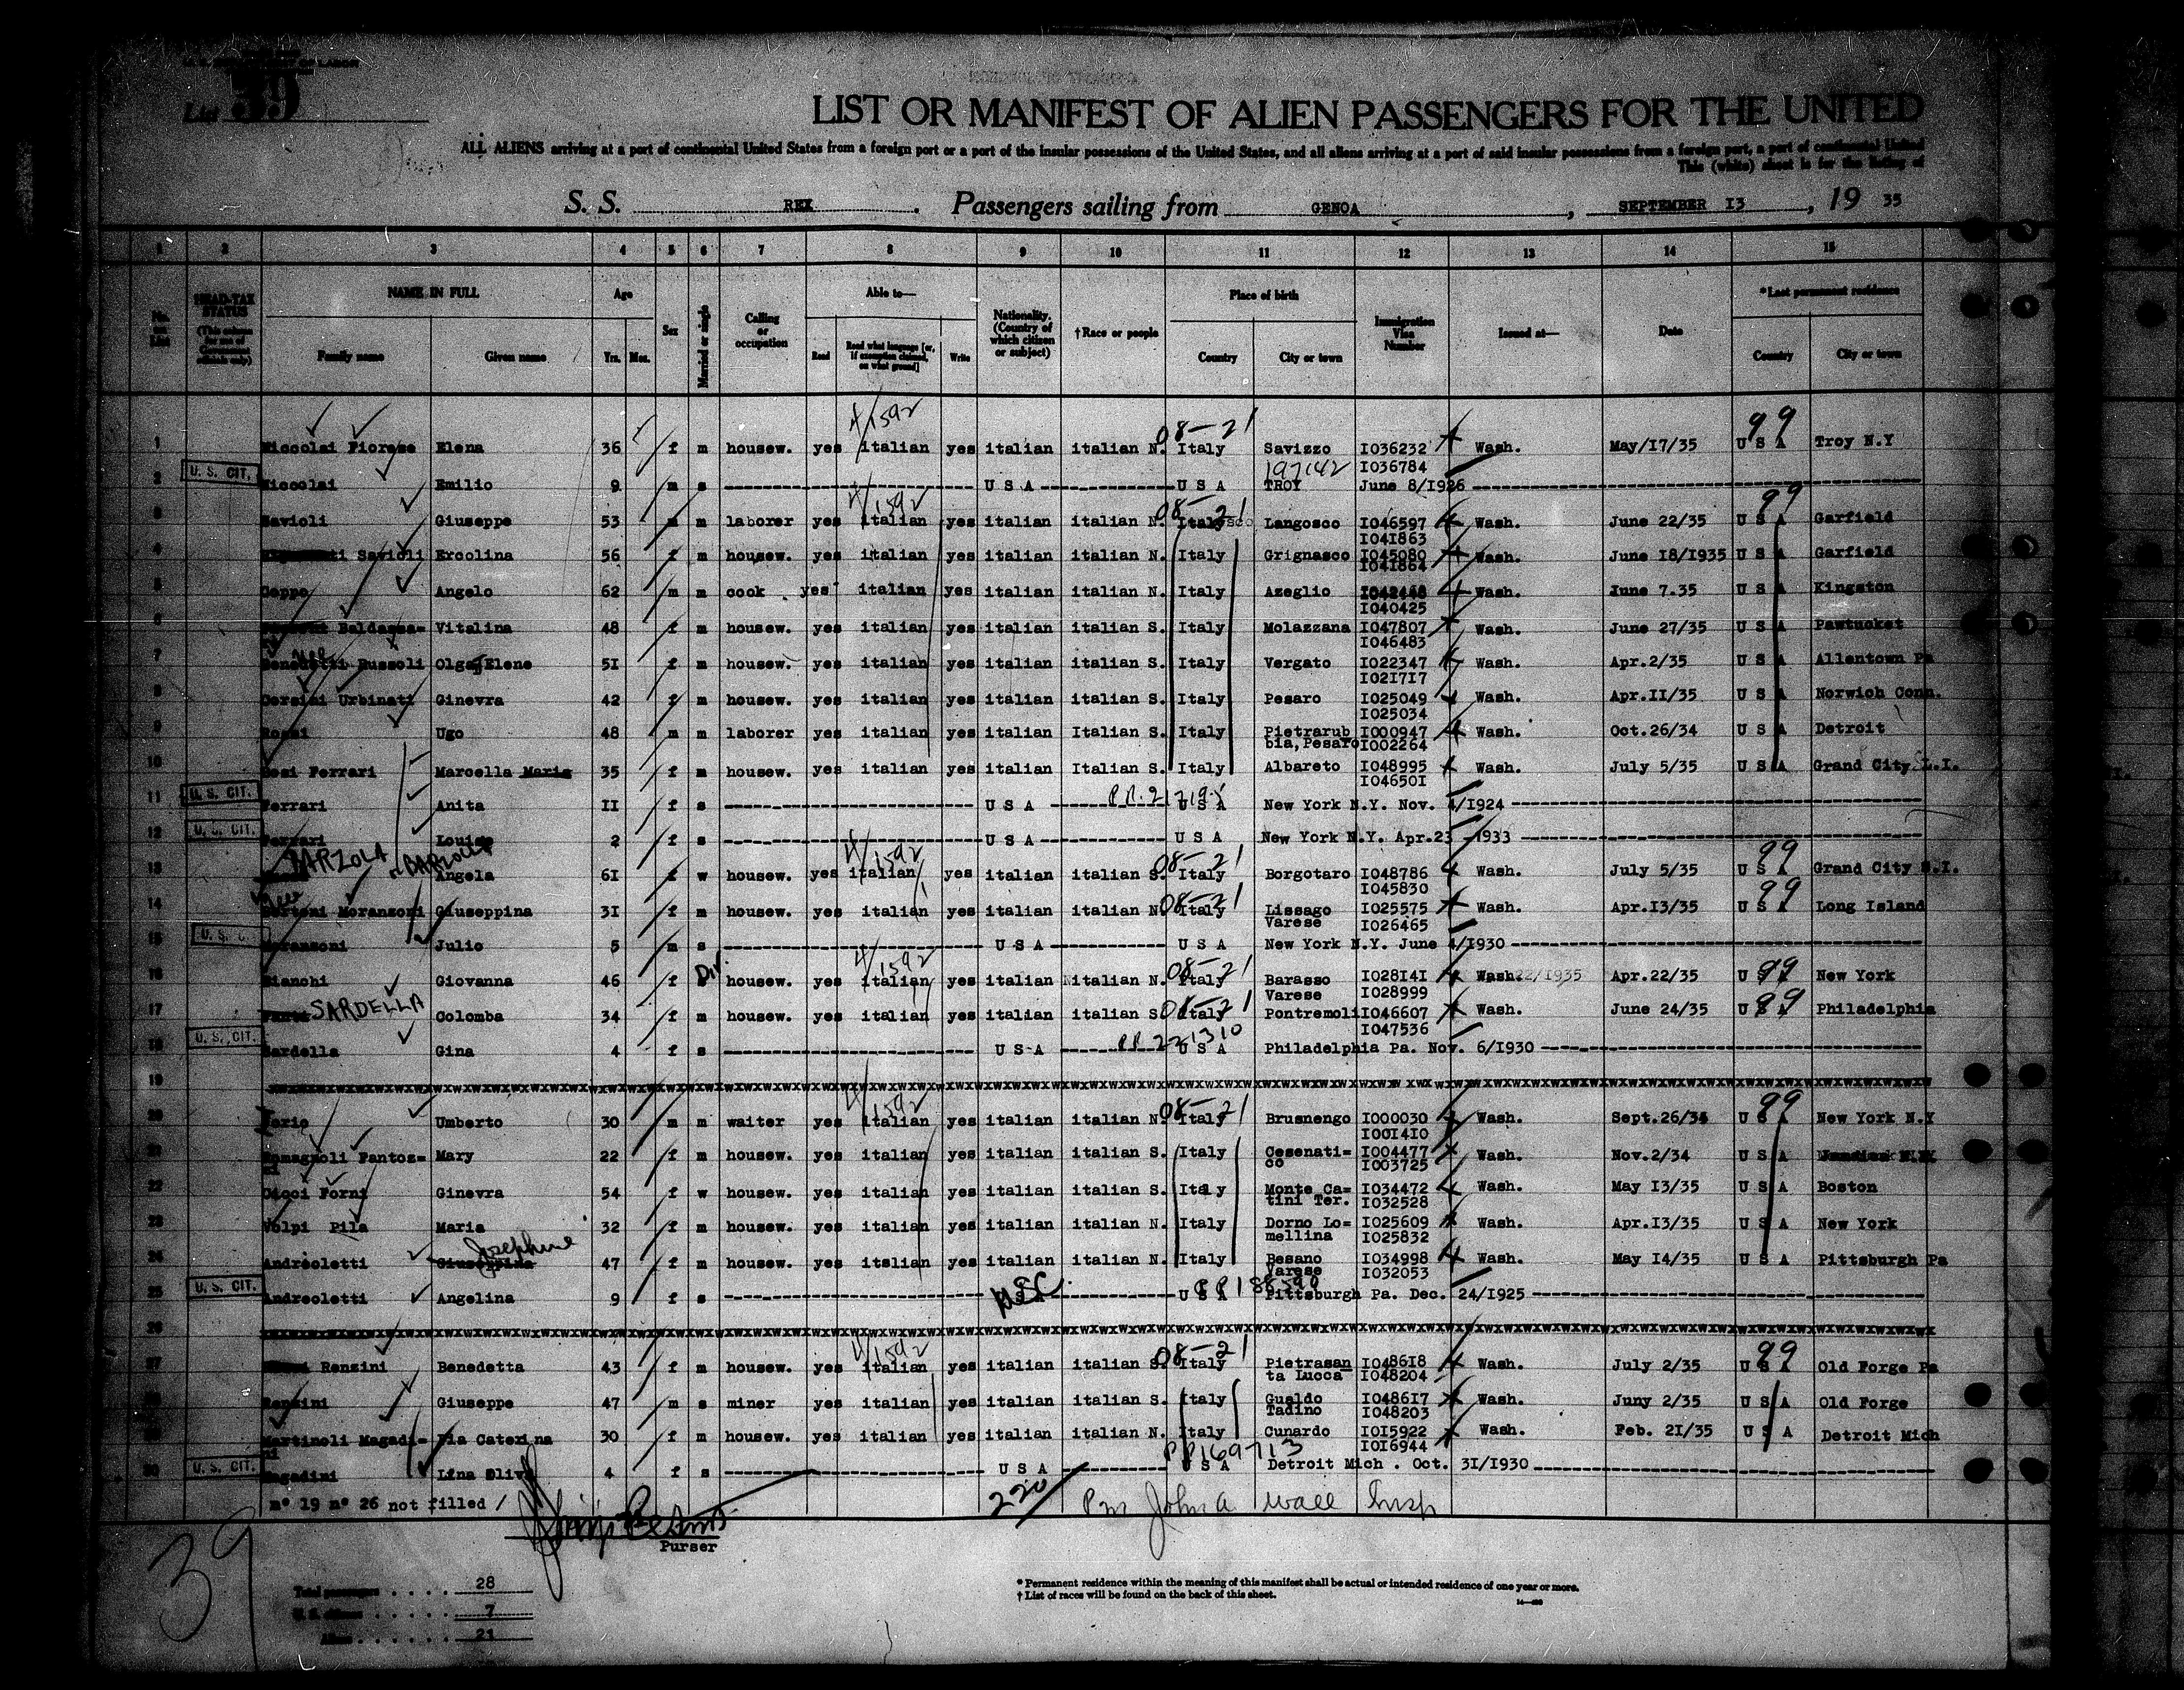 List 39
LIST OR MANIFEST OF ALIEN PASSENGERS FOR THE UNITED
ALL ALIENS arriving at a port of continental United States from a foreign port or a port of the insular possessions of the United States, and all aliens arriving at a port of said insular possessions from a foreign port, a port of continental United
This (white) sheet is for the listing of
S. S. REX , Passengers sailing from GENOA , SEPTEMBER I3 , 19 35
1 2 3 4 5 6 7 8 9 10 11 12 13 14 15
No. on List HEAD-TAX STATUS (This column for use of Government officials only) NAME IN FULL Family name Given name Age Yrs. Mos. Sex Married or single Calling or occupation Able to— Read Read what language [or, if exemption claimed, on what ground] Write Nationality. (Country of which citizen or subject) †Race or people Place of birth Country City or town Immigration Visa Number Issued at— Date *Last permanent residence Country City or town
4/1592 08-21 99
1 Niccolai Fiorese Elena 36 f m housew. yes italian yes italian italian N. Italy Savizzo I036232 Wash. May/I7/35 U S A Troy N.Y
197142 I036784
2 U. S. CIT. Niccolai Emilio 9 m s U S A U S A TROY June 8/I926
4/1592 08-21 99
3 Savioli Giuseppe 53 m m laborer yes italian yes italian italian N. Italy Langosco I046597 Wash. June 22/35 U S A Garfield
I041863
4 Savioli Ercolina 56 f m housew. yes italian yes italian italian N. Italy Grignasco I045080 Wash. June I8/I935 U S A Garfield
I041864
5 Ceppo Angelo 62 m m cook yes italian yes italian italian N. Italy Azeglio Wash. June 7.35 U S A Kingston
I040425
6 Baldassa= Vitalina 48 f m housew. yes italian yes italian italian S. Italy Molazzana I047807 Wash. June 27/35 U S A Pawtucket
I046483
7 Benedetti nee Russoli Olga Elena 5I f m housew. yes italian yes italian italian S. Italy Vergato I022347 Wash. Apr.2/35 U S A Allentown Pa
I021717
8 Corsini Urbinati Ginevra 42 f m housew. yes italian yes italian italian S. Italy Pesaro I025049 Wash. Apr.II/35 U S A Norwich Conn.
I025034
9 Rossi Ugo 48 m m laborer yes italian yes italian Italian S. Italy Pietrarub I000947 Wash. Oct.26/34 U S A Detroit
bia,Pesaro I002264
10 Ferrari Marcella Maria 35 f m housew. yes italian yes italian Italian S. Italy Albareto I048995 Wash. July 5/35 U S A Grand City L.I.
I04650I
11 U. S. CIT. Ferrari Anita II f s U S A U S A New York N.Y. Nov. 4/I924
12 U. S. CIT. Ferrari Louise 2 f s U S A U S A New York N.Y. Apr.23 -I933
BARZOLA BARZOLA 4/1592 08-21 99
13 Angela 6I f w housew. yes italian yes italian italian S. Italy Borgotaro I048786 Wash. July 5/35 U S A Grand City
I045830 99
14 Bertoni Moranzoni Giuseppina 3I f m housew. yes italian yes italian italian N. 08-21 Italy Lissago I025575 Wash. Apr.I3/35 U S A Long Island
Varese I026465
15 U. S. C Moranzoni Julio 5 m s U S A U S A New York N.Y. June 4/I930
16 Bianchi Giovanna 46 f Div. housew. yes 4/1592 italian yes italian italian N. 08-21 Italy Barasso I028I4I Wash. Apr.22/35 U S A 99 New York
Varese I028999
17 SARDELLA Colomba 34 f m housew. yes italian yes italian italian S. 08-21 Italy Pontremoli I046607 Wash. June 24/35 U S A 99 Philadelphia
I047536
18 U. S. CIT. Sardella Gina 4 f s U S A P.P. 221310 U S A Philadelphia Pa. Nov. 6/I930
19
4/1592 08-21 99
20 Zario Umberto 30 m m waiter yes italian yes italian italian N. Italy Brusnengo I000030 Wash. Sept.26/34 U S A New York N.Y
I00I4I0
21 Romagnoli Fantoz= Mary 22 f m housew. yes italian yes italian italian S. Italy Cesenati= I004477 Wash. Nov.2/34 U S A
zi co I003725
22 Cicci Forni Ginevra 54 f w housew. yes italian yes italian italian S. Italy Monte Ca= I034472 Wash. May I3/35 U S A Boston
tini Ter. I032528
23 Volpi Pila Maria 32 f m housew. yes italian yes italian italian N. Italy Dorno Lo= I025609 Wash. Apr.I3/35 U S A New York
mellina I025832
24 Andreoletti Giuseppina Josephine 47 f m housew. yes italian yes italian italian N. Italy Besano I034998 Wash. May I4/35 U S A Pittsburgh Pa
Varese I032053
25 U. S. CIT. Andreoletti Angelina 9 f s USC U S A Pittsburgh Pa. Dec. 24/I925
26
4/1592 08-21 99
27 Renzini Benedetta 43 f m housew. yes italian yes italian italian S. Italy Pietrasan I0486I8 Wash. July 2/35 U S A Old Forge Pa
ta Lucca I048204
28 Renzini Giuseppe 47 m s miner yes italian yes italian italian S. Italy Gualdo I0486I7 Wash. Juny 2/35 U S A Old Forge
Tadino I048203
29 Martinoli Magadi= Pia Caterina 30 f m housew. yes italian yes italian italian N. Italy Cunardo I0I5922 Wash. Feb. 2I/35 U S A Detroit Mich
ni PP169713 I0I6944
30 U. S. CIT. Magadini Lina Oliva 4 f s U S A U S A Detroit Mich . Oct. 3I/I930
n° 19 n° 26 not filled / 220 Pm John A Wall Insp
Purser
39
Total passengers 28
U. S. citizens 7
Aliens 21
* Permanent residence within the meaning of this manifest shall be actual or intended residence of one year or more.
† List of races will be found on the back of this sheet.